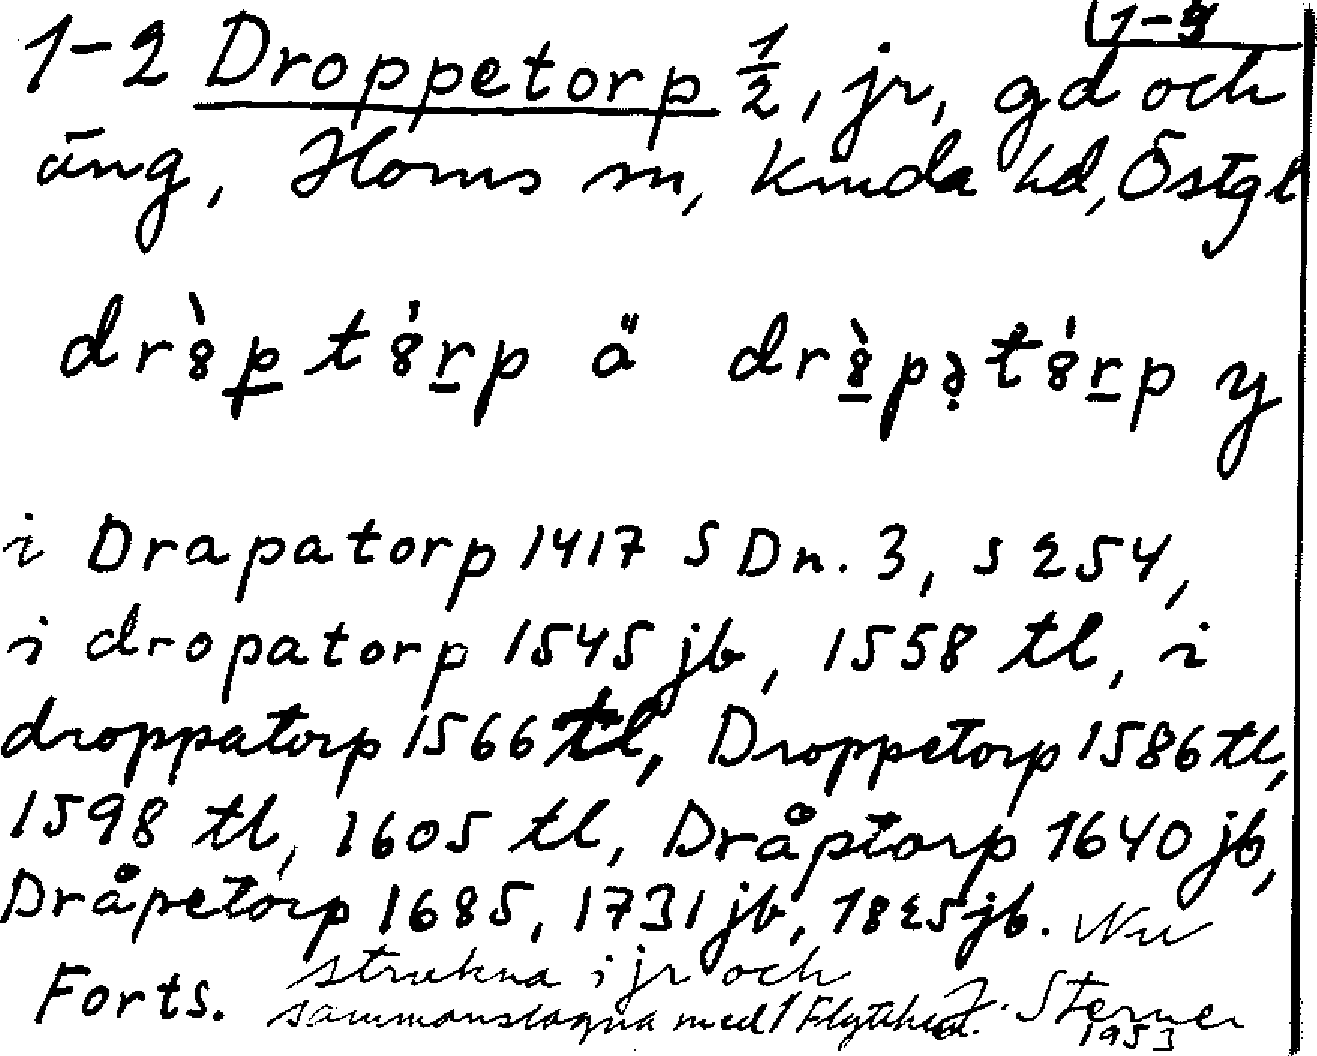 1-3
1-2 Droppetorp 1/2, jr, gd och
äng, Horns sn, Kinda hd, Östgl
i Drapatorp 1417 SDn. 3, s 254,
i dropatorp 1545 jb, 1558 tl, i
droppatorp 1566 tl, Droppetorp 1586 tl,
1598 tl, 1605 tl, Dråptorp 1640 jb,
Dråpetorp 1685, 1731 jb, 1825 jb. Nu
strukna i jr och
Forts. sammanslagna med 1 J. Sterner
1953